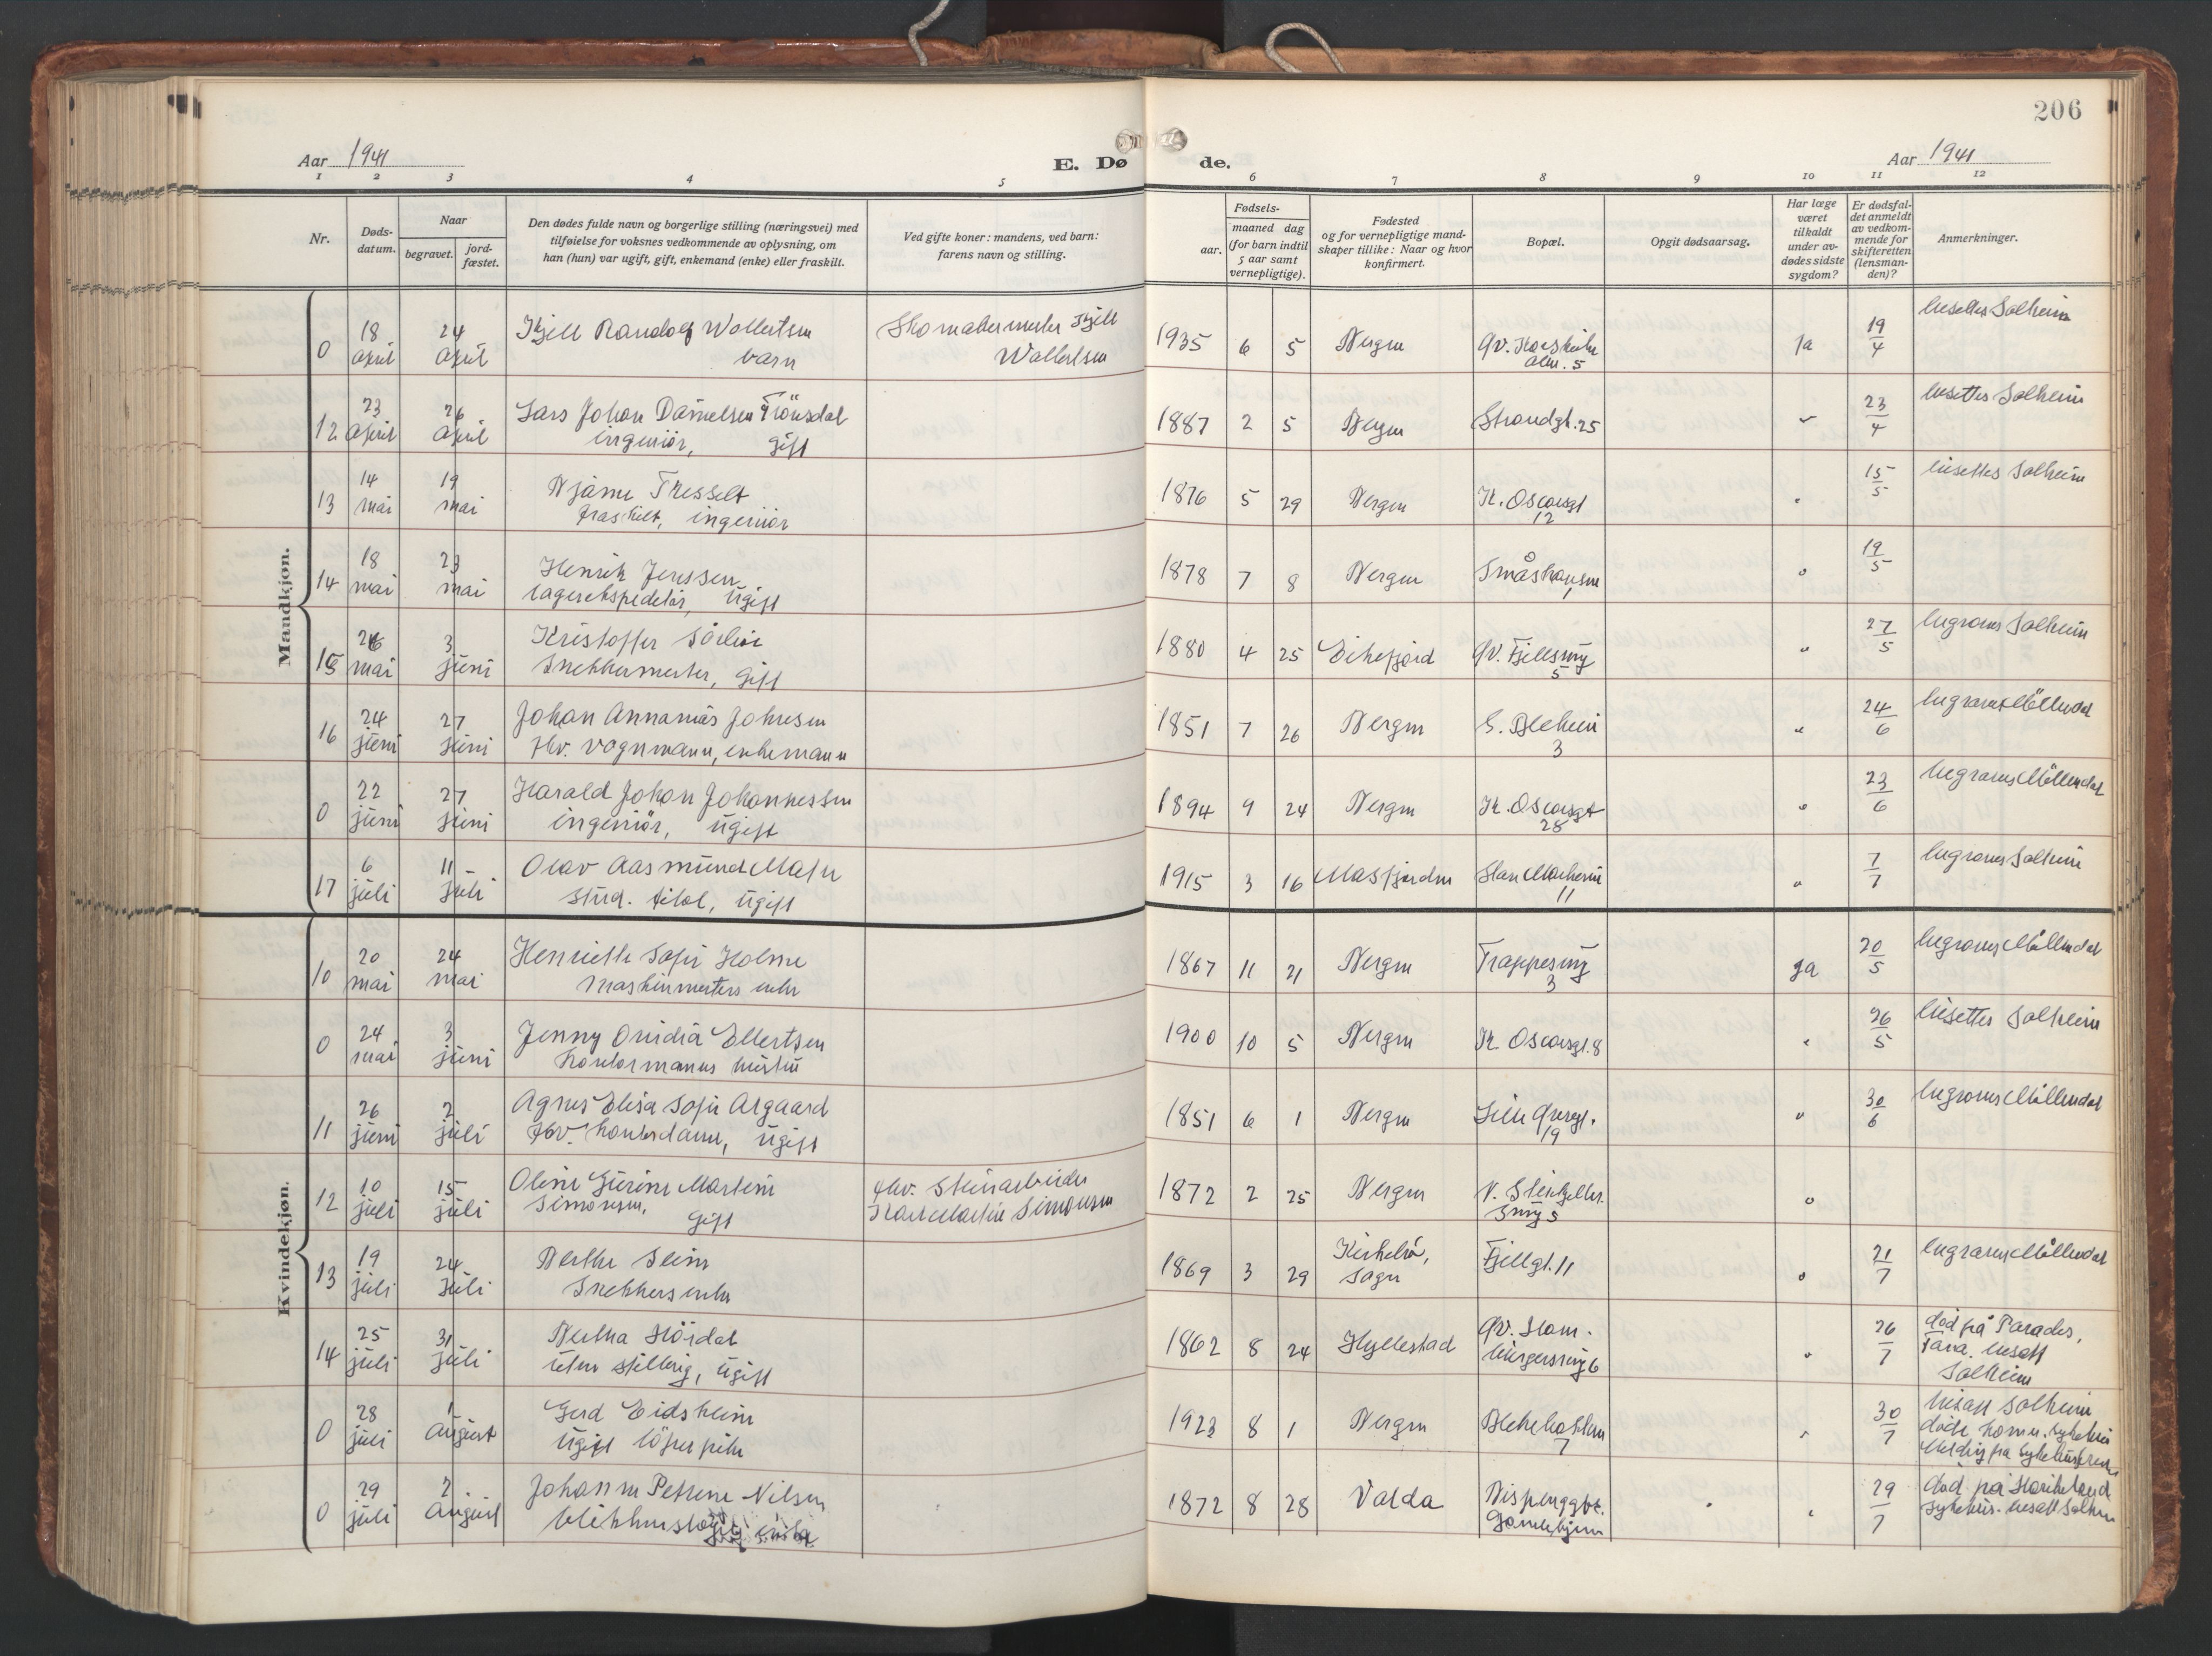 206
Aar 1941
E. Dø
de.
Aar 1941
1 2 3 4 5 6 7 8 9 10 11 12
Nr.
Døds-
datum.
Naar
begravet.
jord-
fæstet.
Den dødes fulde navn og borgerlige stilling (næringsvei) med
tilføielse for voksnes vedkommende av oplysning, om
han (hun) var ugift, gift, enkemand (enke) eller fraskilt.
Ved gifte koner: mandens, ved barn:
farens navn og stilling.
Fødsels-
aar.
maaned dag
(for barn indtil
5 aar samt
vernepligtige).
Fødested
og for vernepligtige mand-
skaper tillike: Naar og hvor
konfirmert.
Bopæl.
Opgit dødsaarsag.
Har læge
været
tilkaldt
under av-
dødes sidste
sygdom?
Er dødsfal-
det anmeldt
av vedkom-
mende for
skifteretten
(lensman-
den)?
Anmerkninger.
Mandkjøn.
0 18 april 24 april Kjell Randolf Wollertsen
barn
Skomakermester Kjell
Wollertsen
1935 6 5 Bergen
alm. 5
ja 19/4 bisettes Solheim
12 23 april 26 april Lars Johan Danielsen Trönsdal
ingeniör, gift
1887 2 5 Bergen Strandgt. 25
23/4 bisettes Solheim
13 14 mai 19 mai Bjarne Thesselt
fraskilt, ingeniör
1876 5 29 Bergen K. Oscarsgt
12
15/5 bisettes Solheim
14 18 mai 23 mai Henrik Jenssen
lagerekspeditör, ugift
1878 7 8 Bergen
1
19/5
15 26 mai 3 juni Kristoffer
Snekkermester, gift
1880 4 25 Eikefjord Øv. Fjellsmg
5
27/5 begraves Solheim
16 24 juni 27 juni Johan Annanias Johnsen
fhv. vognmann, enkemann
1851 7 26 Bergen
3
24/6 begraves Möllendal
0 22 juni 27 juni Harald Johan Johannessen
ingeniör, ugift
1894 9 24 Bergen K. Oscarsgt
28
23/6 begraves Möllendal
17 6 juli 11 juli Olav Aasmund
stud. filol, ugift
1915 3 16 Masfjorden
11
7/7 begraves Solheim
Kvindekjøn.
10 20 mai 24 mai Henriette Sofie Holme
Maskinmesters enke
1867 11 21 Bergen Trappesmg
3
ja 20/5 begraves Möllendal
0 24 mai 3 juni Jenny Ovidia Ellertsen
kontormanns hustru
1900 10 5 Bergen K. Oscarsgt. 8
26/5 bisettes Solheim
11 26 juni 2 juli Agnes Elisa Sofie Asgaard
fhv. kontordame, ugift
1851 6 1 Bergen Lille Øvregt.
19
30/6 begraves Möllendal
12 10 juli 15 juli Oline Gurine Martini
Simonsen, gift
fhv. Steinarbeider
Karl Martin Simonsen
1872 2 25 Bergen
smg 5
13 19 juli 24 juli Berthe Seim
Snekkers enke
1869 3 29
Sogn
Fjellgt. 11
21/7 begraves Möllendal
14 25 juli 31 juli Bertha Hördal
uten stilling, ugift
1862 8 24 Hyllestad
26/7 död på Paradis,
Fana. bisatt
Solheim
0 28 juli 1 august Gerd Eidsheim
ugift löperpike
1923 8 1 Bergen
7
30/7 bisatt Solheim
döde komm. sykehus
0 29 juli 2 august Johanne Petrine Nilsen
enke
1872 8 28 Volda
29/7 död på Haukeland
sykehus. bisatt Solheim